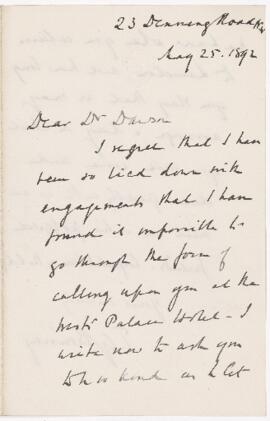 23 Denning Road
May 25. 1892
Dear Dr Dawson
I regret that I have
been so tied down with
engagements that I have
found it impossible to
go through the form of
calling upon you at the
Westr Palace Hotel - I
write now to ask you
to be so kind as to let